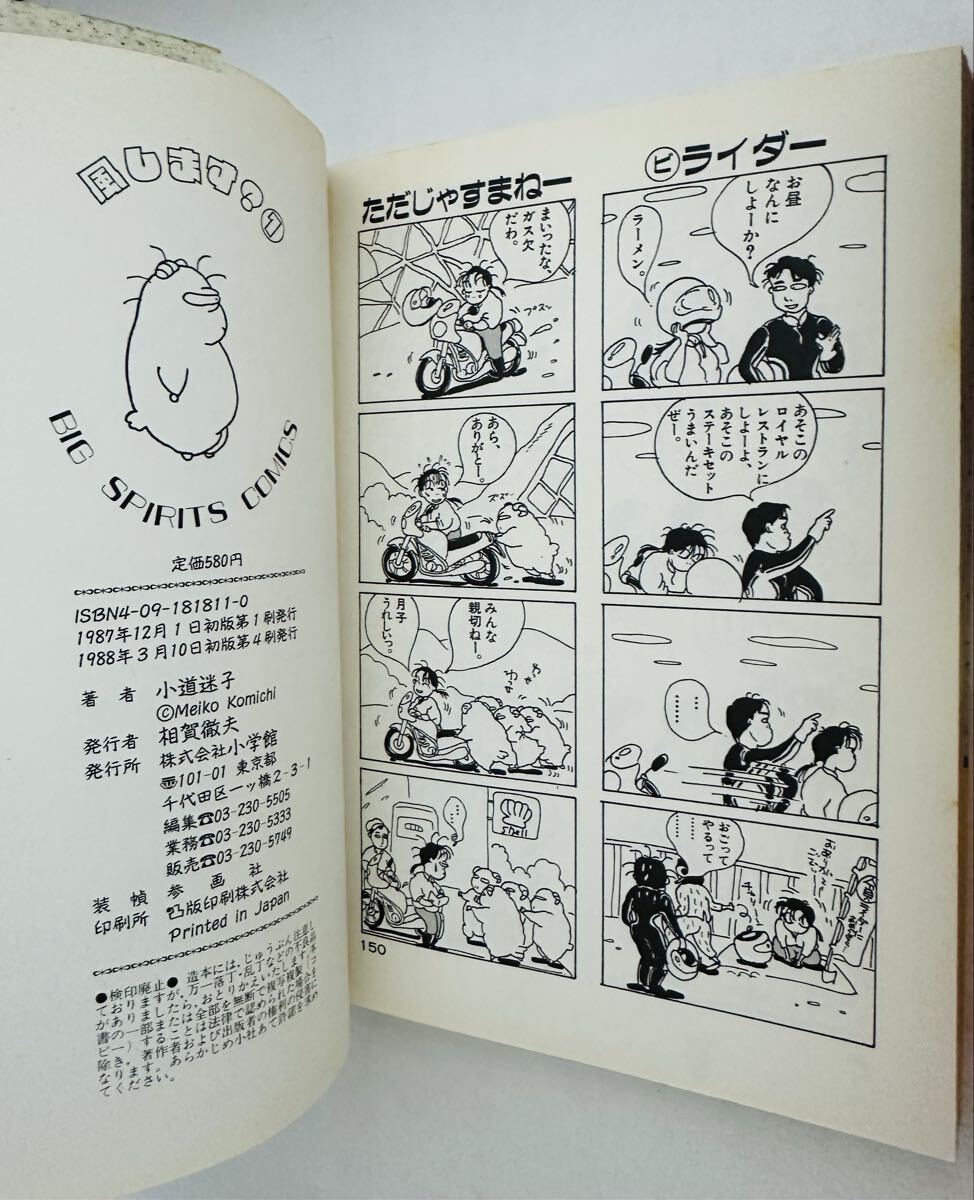 風します?①
BIG SPIRITS COMICS
定価580円
ISBN4-09-181811-0
1987年12月1日初版第1刷発行
1988年3月10日初版第4刷発行
著者 小道迷子
©Meiko Komichi
発行者 相賀徹夫
発行所 株式会社小学館
〠101-01 東京都
千代田区一ッ橋2-3-1
編集☎03-230-5505
業務☎03-230-5333
販売☎03-230-5749
装幀 参画社
印刷所 凸版印刷株式会社
Printed in Japan
●検印廃止●
造本には、じゅうぶん注意し
ておりますが、万一落丁・乱丁などの不良品
がありましたら、おとりかえいたします。本
書の一部または全部を無断で複写複製(コ
ピー)することは法律で認められた場合を
除き、著作者および出版者の権利の侵害に
なります。あらかじめ小社あて許諾を求め
てください。
㋪ライダー
お昼
なんに
しよーか?
ラーメン。
あそこの
ロイヤル
レストランに
しよーよ、
あそこの
ステーキセット
うまいんだ
ぜー。
……
……
おごって
やるって
……
……
チャリ
ただじゃすまねー
まいったな、
ガス欠
だわ。
プスン
あら、
ありがとー。
ズズ
みんな
親切ねー。
月子
うれしいっ。
わっせ
わっせ
Shell
150